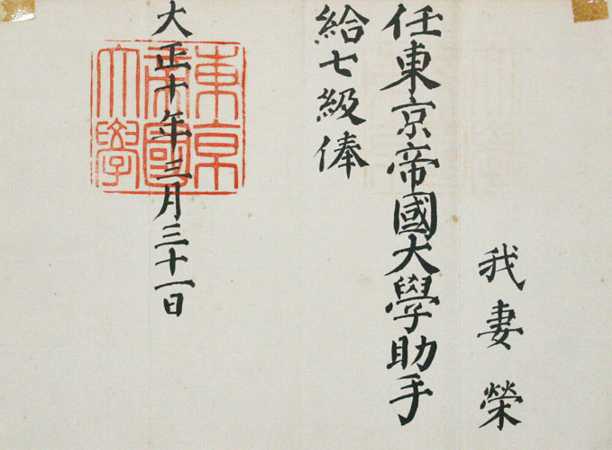 我妻榮
任東京帝國大學助手
給七級俸
大正十年三月三十一日
東京帝國大學